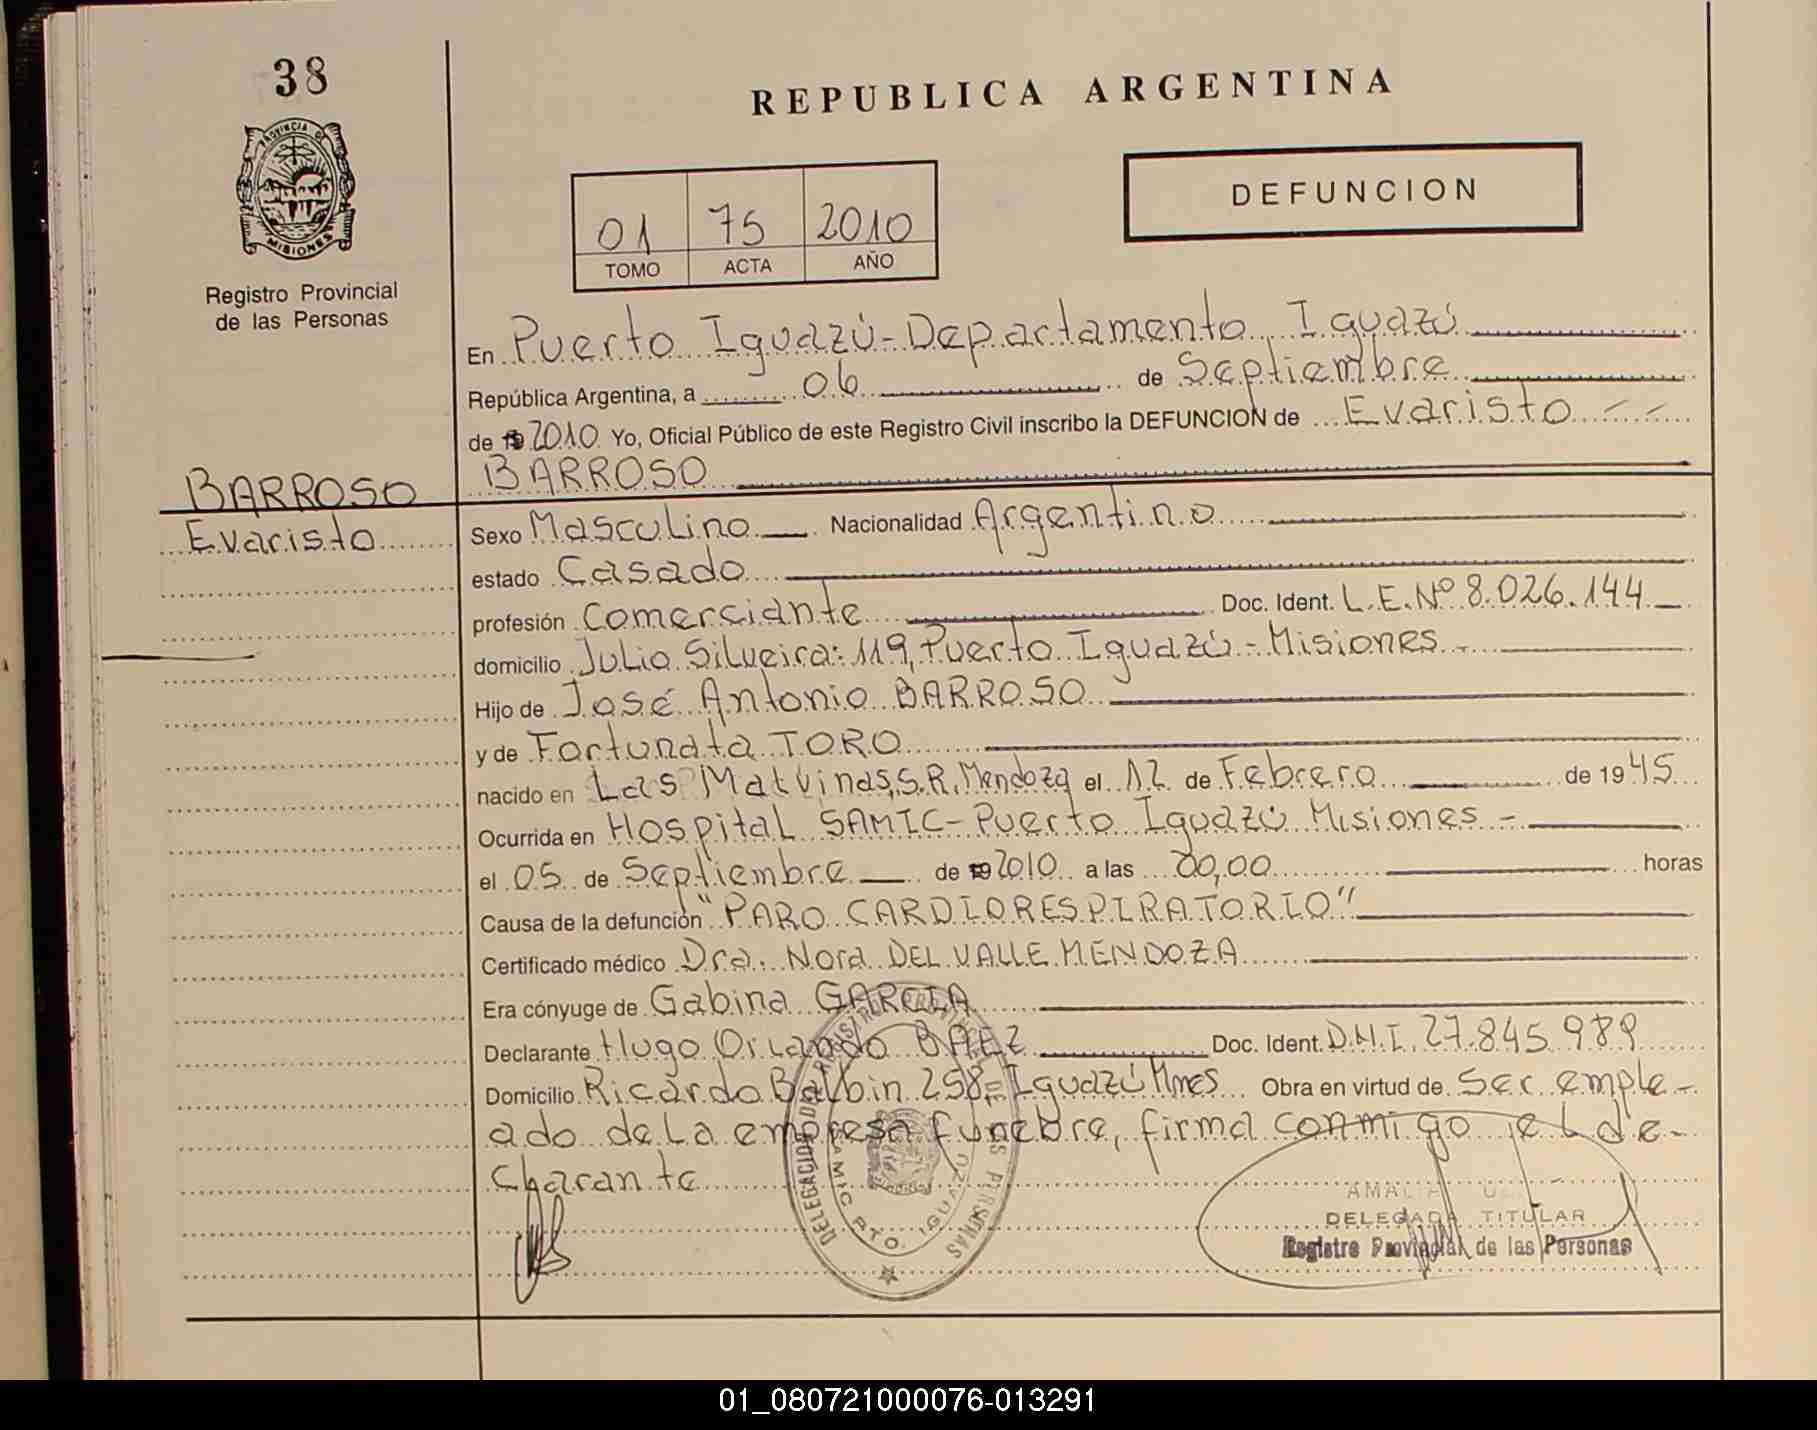 38
PROVINCIA DE
MISIONES
Registro Provincial
de las Personas
REPUBLICA ARGENTINA
DEFUNCION
01 75 2010
TOMO ACTA AÑO
En Puerto Iguazú - Departamento Iguazú
República Argentina, a 06 de Septiembre
de 19 2010 Yo, Oficial Público de este Registro Civil inscribo la DEFUNCION de Evaristo
BARROSO
BARROSO
Evaristo
Sexo Masculino Nacionalidad Argentino
estado Casado
profesión Comerciante Doc. Ident. L.E.Nº 8.026.144
domicilio Julio Silveira: 119, Puerto Iguazú - Misiones -
Hijo de José Antonio BARROSO
y de Fortunata TORO
nacido en Las Malvinas, S.R. Mendoza el 12 de Febrero de 1945
Ocurrida en Hospital SAMIC - Puerto Iguazú Misiones -
el 05 de Septiembre de 19 2010 a las 00,00 horas
Causa de la defunción "PARO CARDIORESPIRATORIO"
Certificado médico Dra. Nora DEL VALLE MENDOZA
Era cónyuge de Gabina GARCIA
Declarante Hugo Orlando BAEZ Doc. Ident. D.N.I. 27.845.989
Domicilio Ricardo Balbin 258 - Iguazú Mnes Obra en virtud de Ser emple-
ado de la empresa funebre, firma conmigo el de-
Clarante
DELEGACION DEL REGISTRO PERSONAS
SAMIC PTO. IGUAZU
DELEGADA TITULAR
Registro Provincial de las Personas
01_080721000076-013291